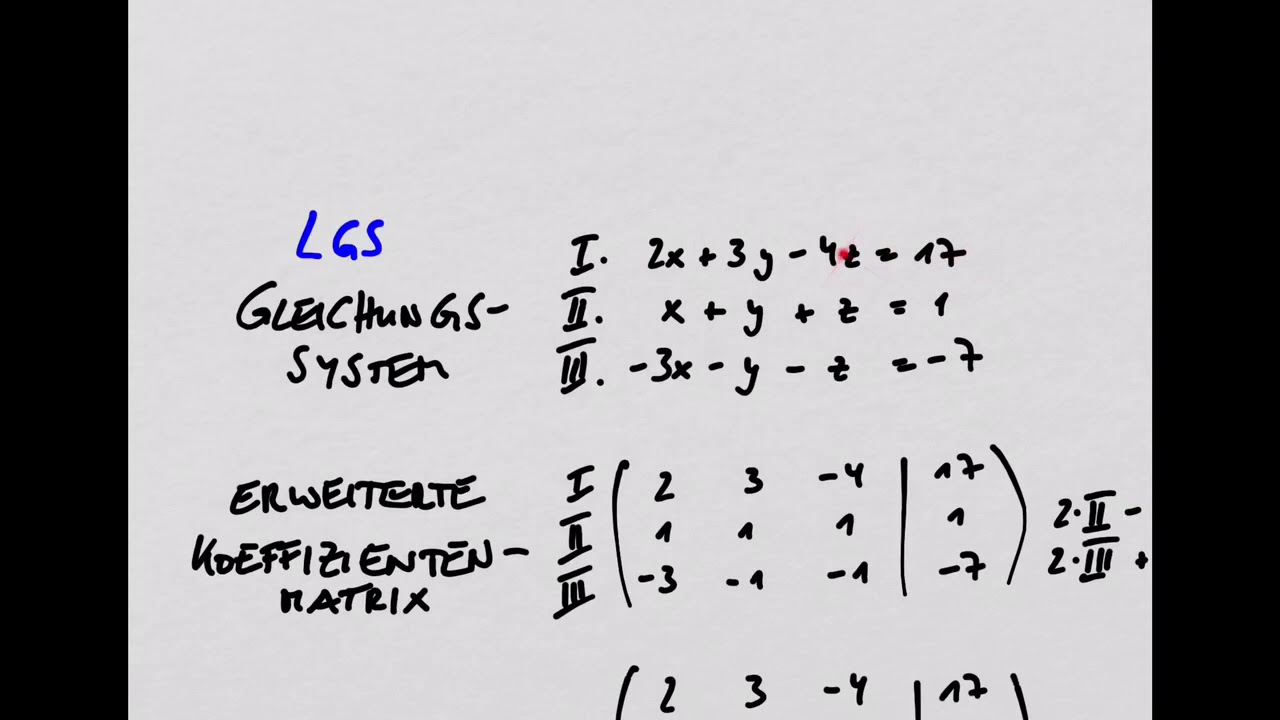 LGS
GLEICHUNGS-
SYSTEM
I. 2x + 3y - 4z = 17
II. x + y + z = 1
III. -3x - y - z = -7
ERWEITERTE
KOEFFIZIENTEN-
MATRIX
I ( 2 3 -4 | 17 )
II 1 1 1 | 1 2·II -
III -3 -1 -1 | -7 2·III +
( 2 3 -4 | 17 )